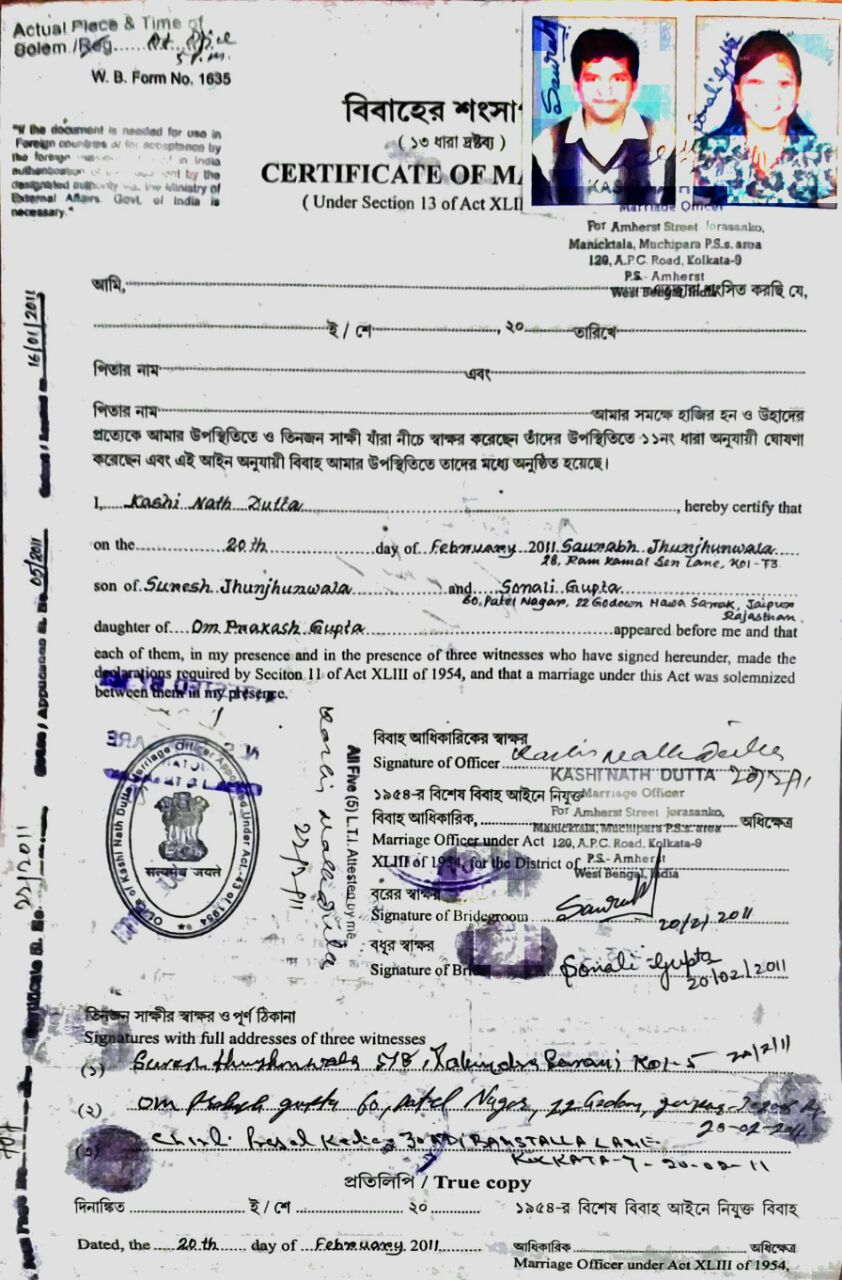 Actual Place & Time of
Solem./Reg...... At Office
5 P.m.
W. B. Form No. 1635
"If the document is needed for use in
Foreign countries or for acceptance by
the foreign in India
authentication of by the
designated authority via. the Ministry of
External Affairs. Govt. of India is
necessary."
বিবাহের শংসা
( ১৩ ধারা দ্রষ্টব্য )
CERTIFICATE OF MA
( Under Section 13 of Act XLII
Saurabh
Sonali Gupta
KAS
Marriage Officer
For Amherst Street Jorasanko,
Manicktala, Muchipara P.S.s. area
129, A.P.C. Road, Kolkata-9
P.S.- Amherst
West Bengal, India
আমি, শংসিত করছি যে,
ই / শে , ২০ তারিখে
পিতার নাম এবং
পিতার নাম আমার সমক্ষে হাজির হন ও উহাদের
প্রত্যেকে আমার উপস্থিতিতে ও তিনজন সাক্ষী যাঁরা নীচে স্বাক্ষর করেছেন তাঁদের উপস্থিতিতে ১১নং ধারা অনুযায়ী ঘোষণা
করেছেন এবং এই আইন অনুযায়ী বিবাহ আমার উপস্থিতিতে তাদের মধ্যে অনুষ্ঠিত হয়েছে।
I, Kashi Nath Dutta , hereby certify that
on the 20th day of February 2011 Saurabh Jhunjhunwala
28, Ram Kamal Sen Lane, Kol-73
son of Suresh Jhunjhunwala and Sonali Gupta
60, Patel Nagar, 22 Godown Hawa Sarak, Jaipur
Rajasthan
daughter of Om Prakash Gupta appeared before me and that
each of them, in my presence and in the presence of three witnesses who have signed hereunder, made the
declarations required by Seciton 11 of Act XLIII of 1954, and that a marriage under this Act was solemnized
between them in my presence.
16/01/2011
05/2011
22/2011
Office of Kashi Nath Dutta Marriage Officer Appointed Under Act-43 of 1954
सत्यमेव जयते
All Five (5) L.T.I. Attested by me
Kashi Nath Dutta
বিবাহ আধিকারিকের স্বাক্ষর
Signature of Officer Kashi Nath Dutta
KASHI NATH DUTTA
১৯৫৪-র বিশেষ বিবাহ আইনে নিযুক্ত Marriage Officer
For Amherst Street Jorasanko,
বিবাহ আধিকারিক, Manicktala, Muchipara P.S.s. area অধিক্ষেত্র
Marriage Officer under Act 129, A.P.C. Road, Kolkata-9
XLIII of 1954, for the District of P.S.- Amherst
West Bengal, India
বরের স্বাক্ষর
Signature of Bridegroom Saurabh
20/2/2011
বধূর স্বাক্ষর
Signature of Bri Sonali Gupta
20/02/2011
তিনজন সাক্ষীর স্বাক্ষর ও পূর্ণ ঠিকানা
Signatures with full addresses of three witnesses
(১) Suresh Jhunjhunwala 578, Rabindra Sarani Kol-5 20/2/11
(২) Om Prakash Gupta 60, Patel Nagar, 22 Godam,
20-02-2011
(৩) BANSTALLA LANE
KOLKATA-7 - 20-02-11
প্রতিলিপি / True copy
দিনাঙ্কিত ই / শে ২০ ১৯৫৪-র বিশেষ বিবাহ আইনে নিযুক্ত বিবাহ
Dated, the 20th day of February 2011 আধিকারিক অধিক্ষেত্র
Marriage Officer under Act XLIII of 1954,